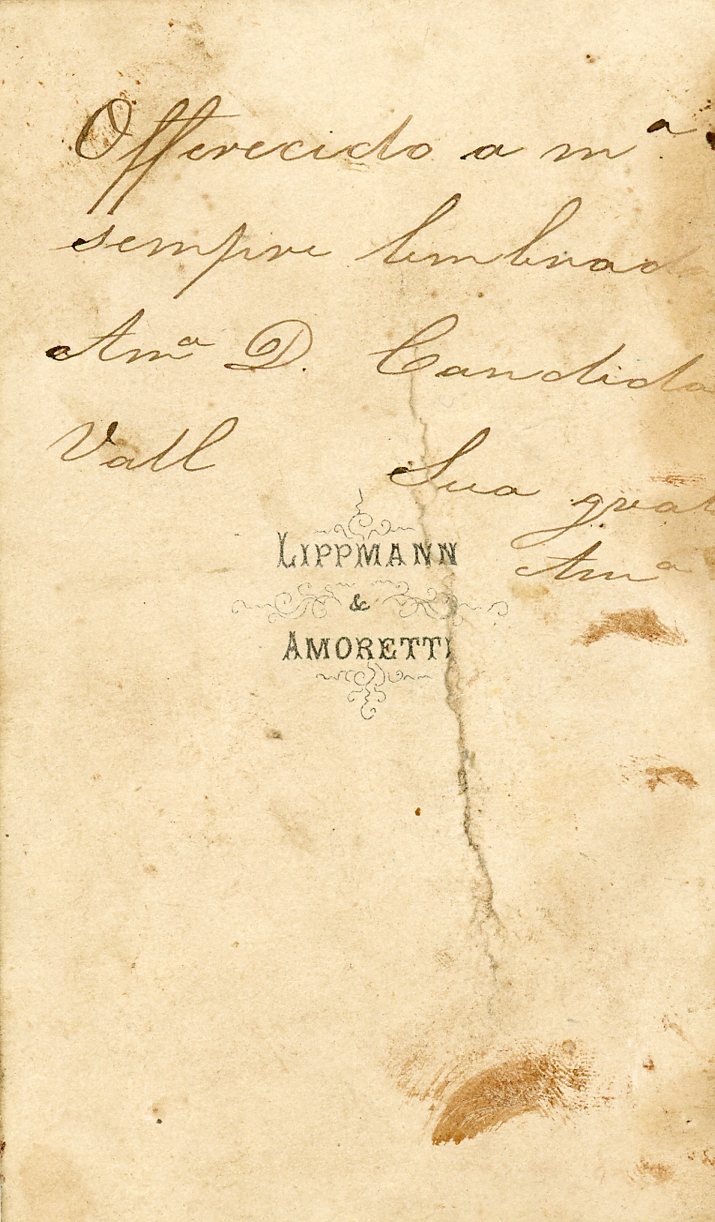 Offerecido a mª
sempre lembrada
Amª D. Candida
Vall Sua grat
Amª
LIPPMANN
&
AMORETTI